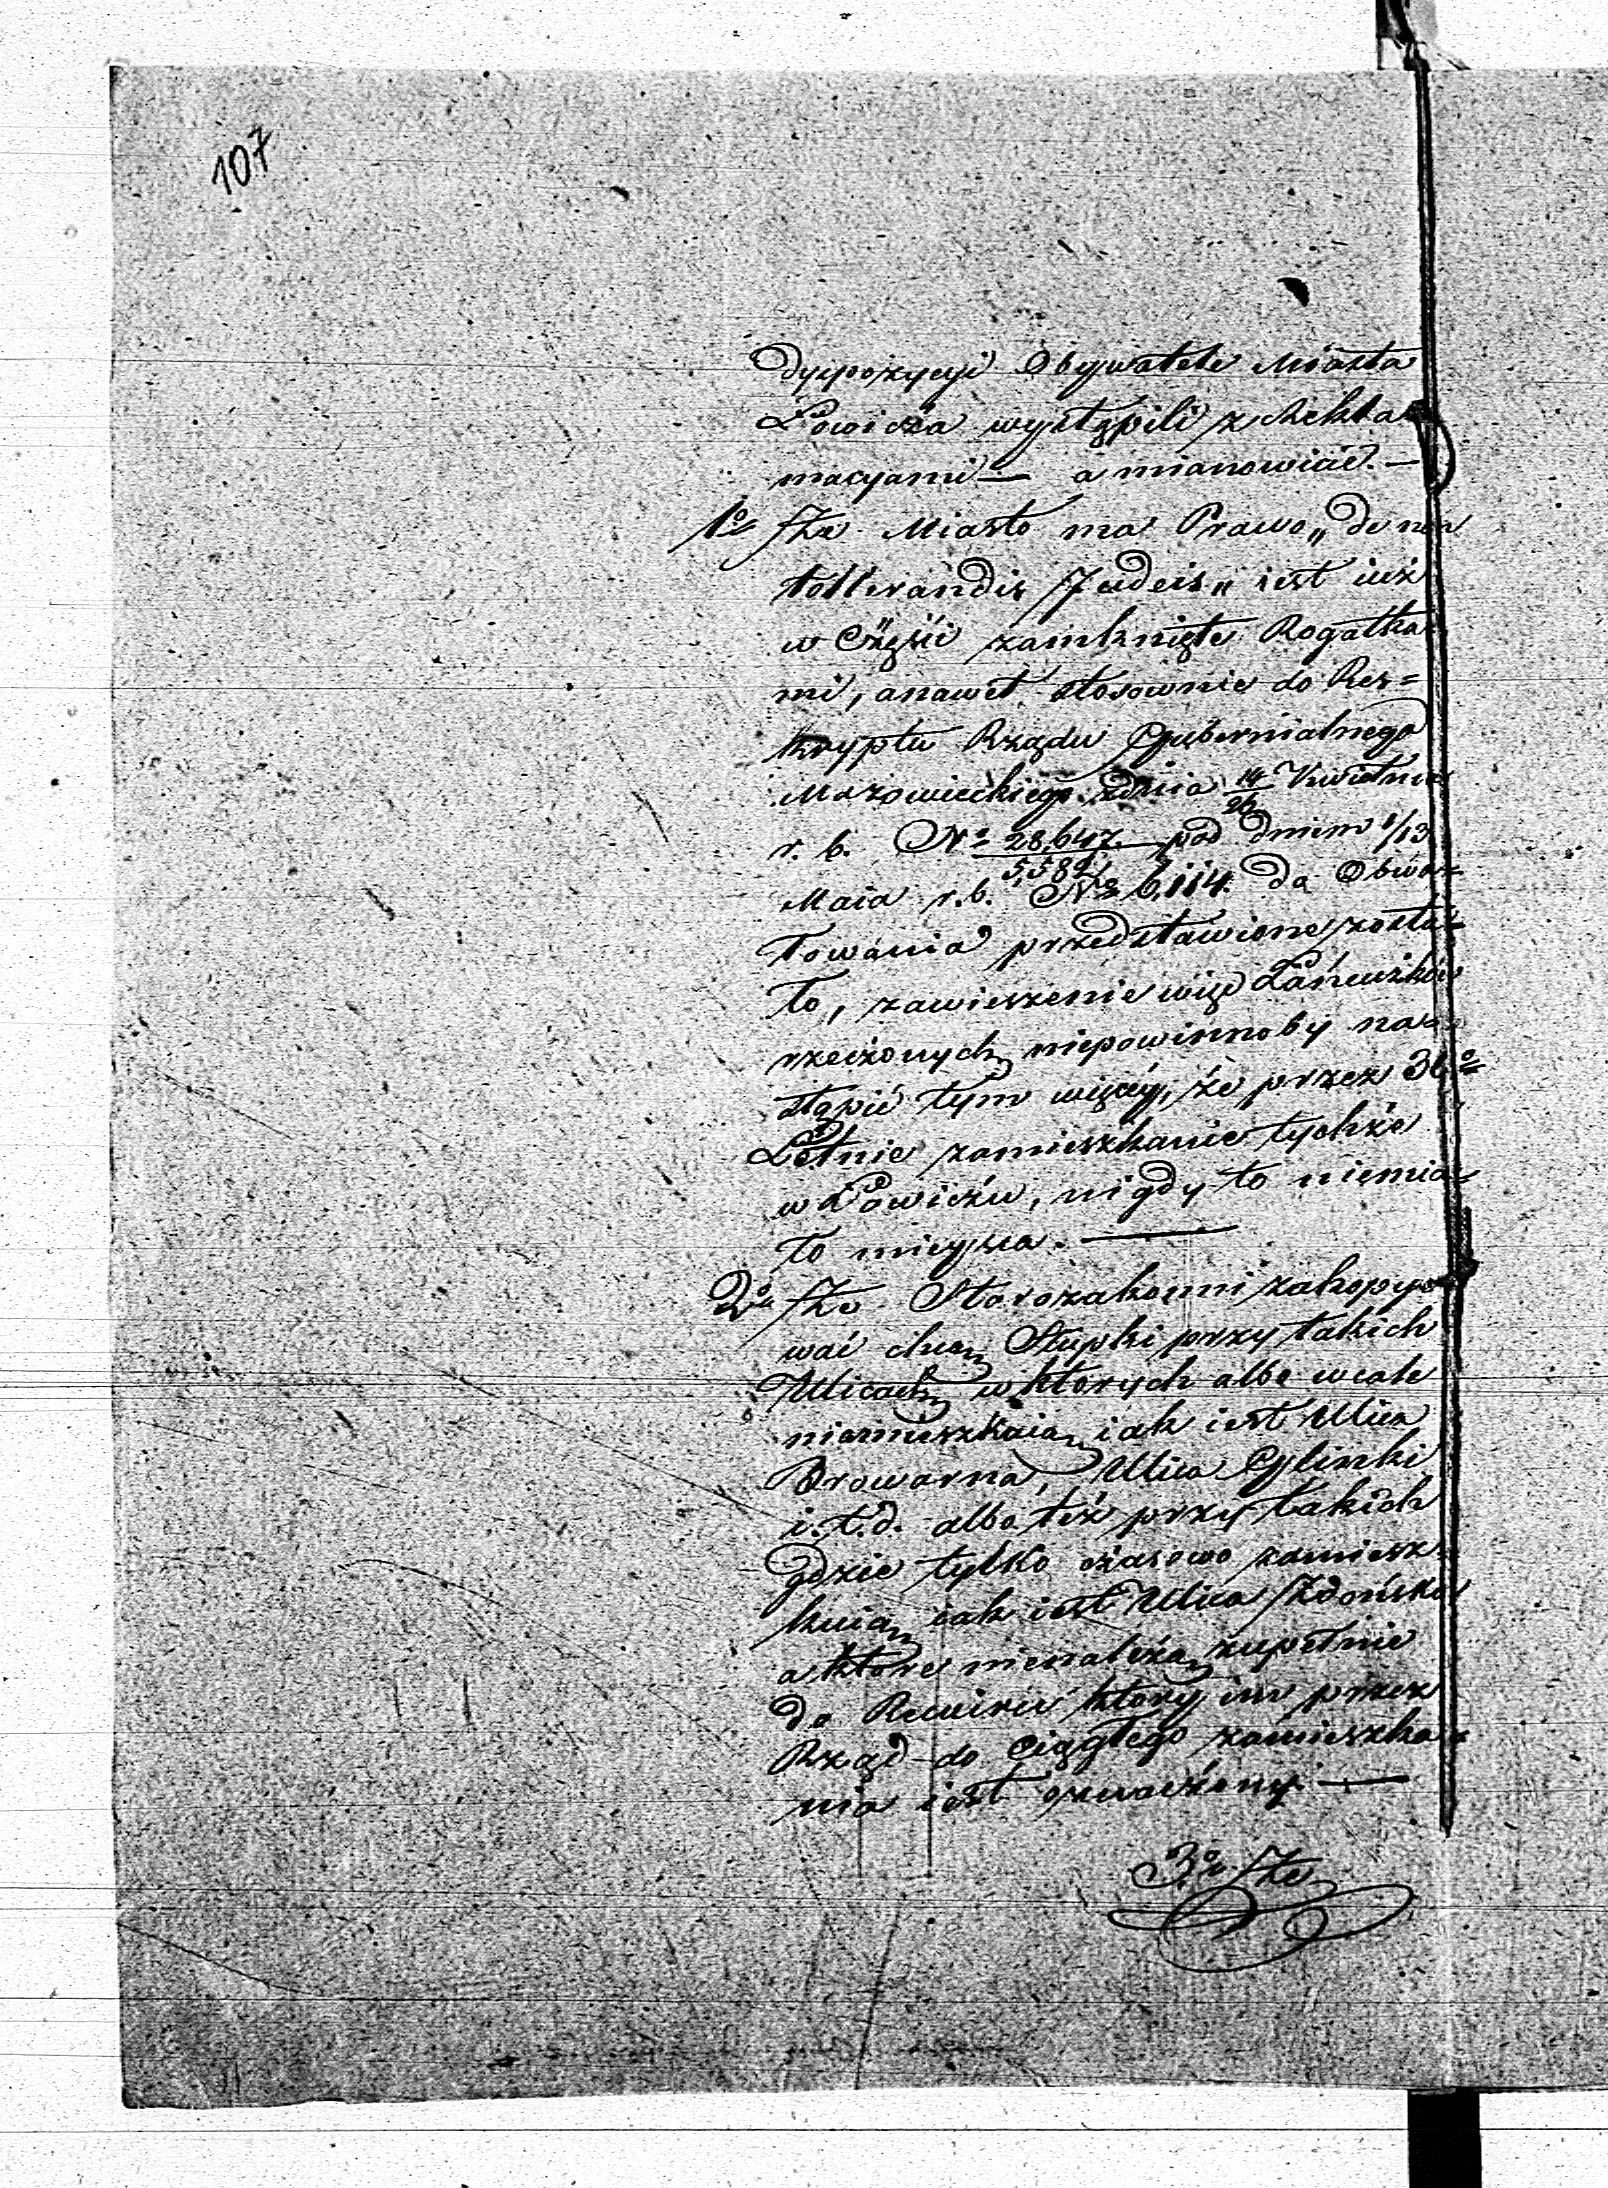 107
dyspozycyi Obywatele Miasta
Łowicza wystąpili z Rekla=
macyami — a mianowicie. —
1o Że Miasto ma Prawo „de non
tollerandis Judeis„ iest iuż
w Części zamknięte Rogatka=
mi, a nawet stosownie do Res=
kryptu Rządu Gubernialnego
Mazowieckiego z dnia 14/26 Kwietnia
r. b. No 28,647/5,582 pod dniem 1/13
Maia r. b. No 6,114. do Obwa=
rowania przedstawione zosta=
ło, zawieszenie więc Łańcuzków
rzeczonych niepowinnoby na=
stąpić tym więcey, że przez 30o
Letnie zamieszkanie tychże
w Łowiczu, nigdy to niemia=
ło mieysca. —
2o Że Starozakonni zakopy=
wać chcą Słupki przy takich
Ulicach w których albo wcale
niemieszkaią iak iest Ulica
Browarna, Ulica Glinki
i. t. d. albo też przy takich
gdzie tylko czasowo zamiesz=
kuią iak iest Ulica Zdońska
a które nienależą zupełnie
do Rewiru który im przez
Rząd do ciągłego zamieszka=
nia iest oznaczony —
3o Że